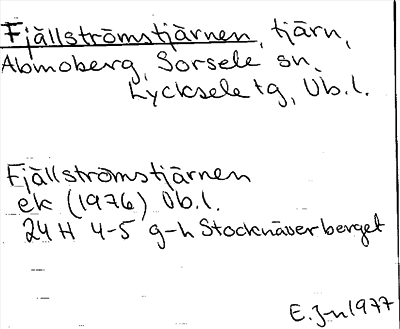 Fjällströmstjärnen, tjärn,
Abmoberg, Sorsele sn,
Lycksele tg, Vb.l.
Fjällströmstjärnen
ek (1976) Vb.l.
24 H 4-5 g-h Stocknäverberget
E. J-n 1977